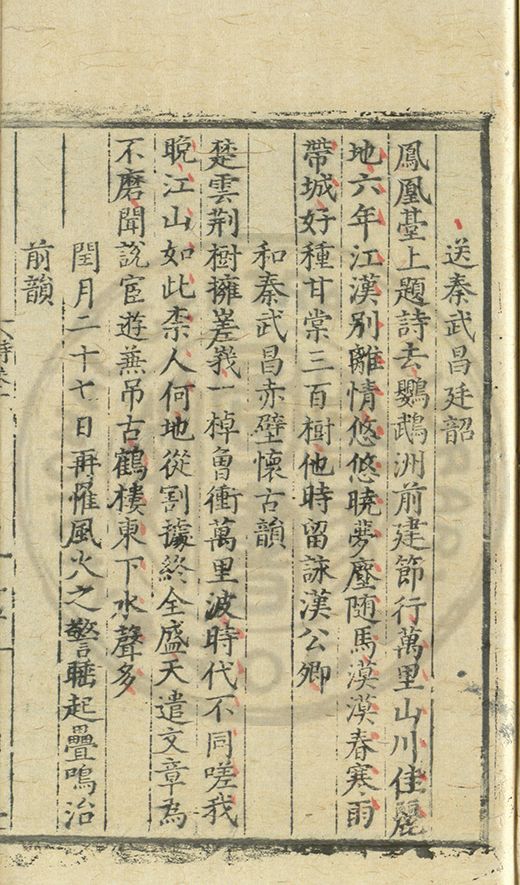 送秦武昌廷韶
鳳凰臺上題詩去鸚鵡洲前建節行萬里山川佳麗
地六年江漢別離情悠悠曉夢塵随馬漠漠春寒雨
帶城好種甘棠三百樹他時留詠漢公卿
和秦武昌赤壁懷古韻
楚雲荆樹擁嵳峩一棹曽衝萬里波時代不同嗟我
晚江山如此柰人何地從割據終全盛天遣文章為
不磨聞說宦遊兼吊古鶴樓東下水聲多
閏月二十七日再罹風火之警睡起疊鳴治
前韻